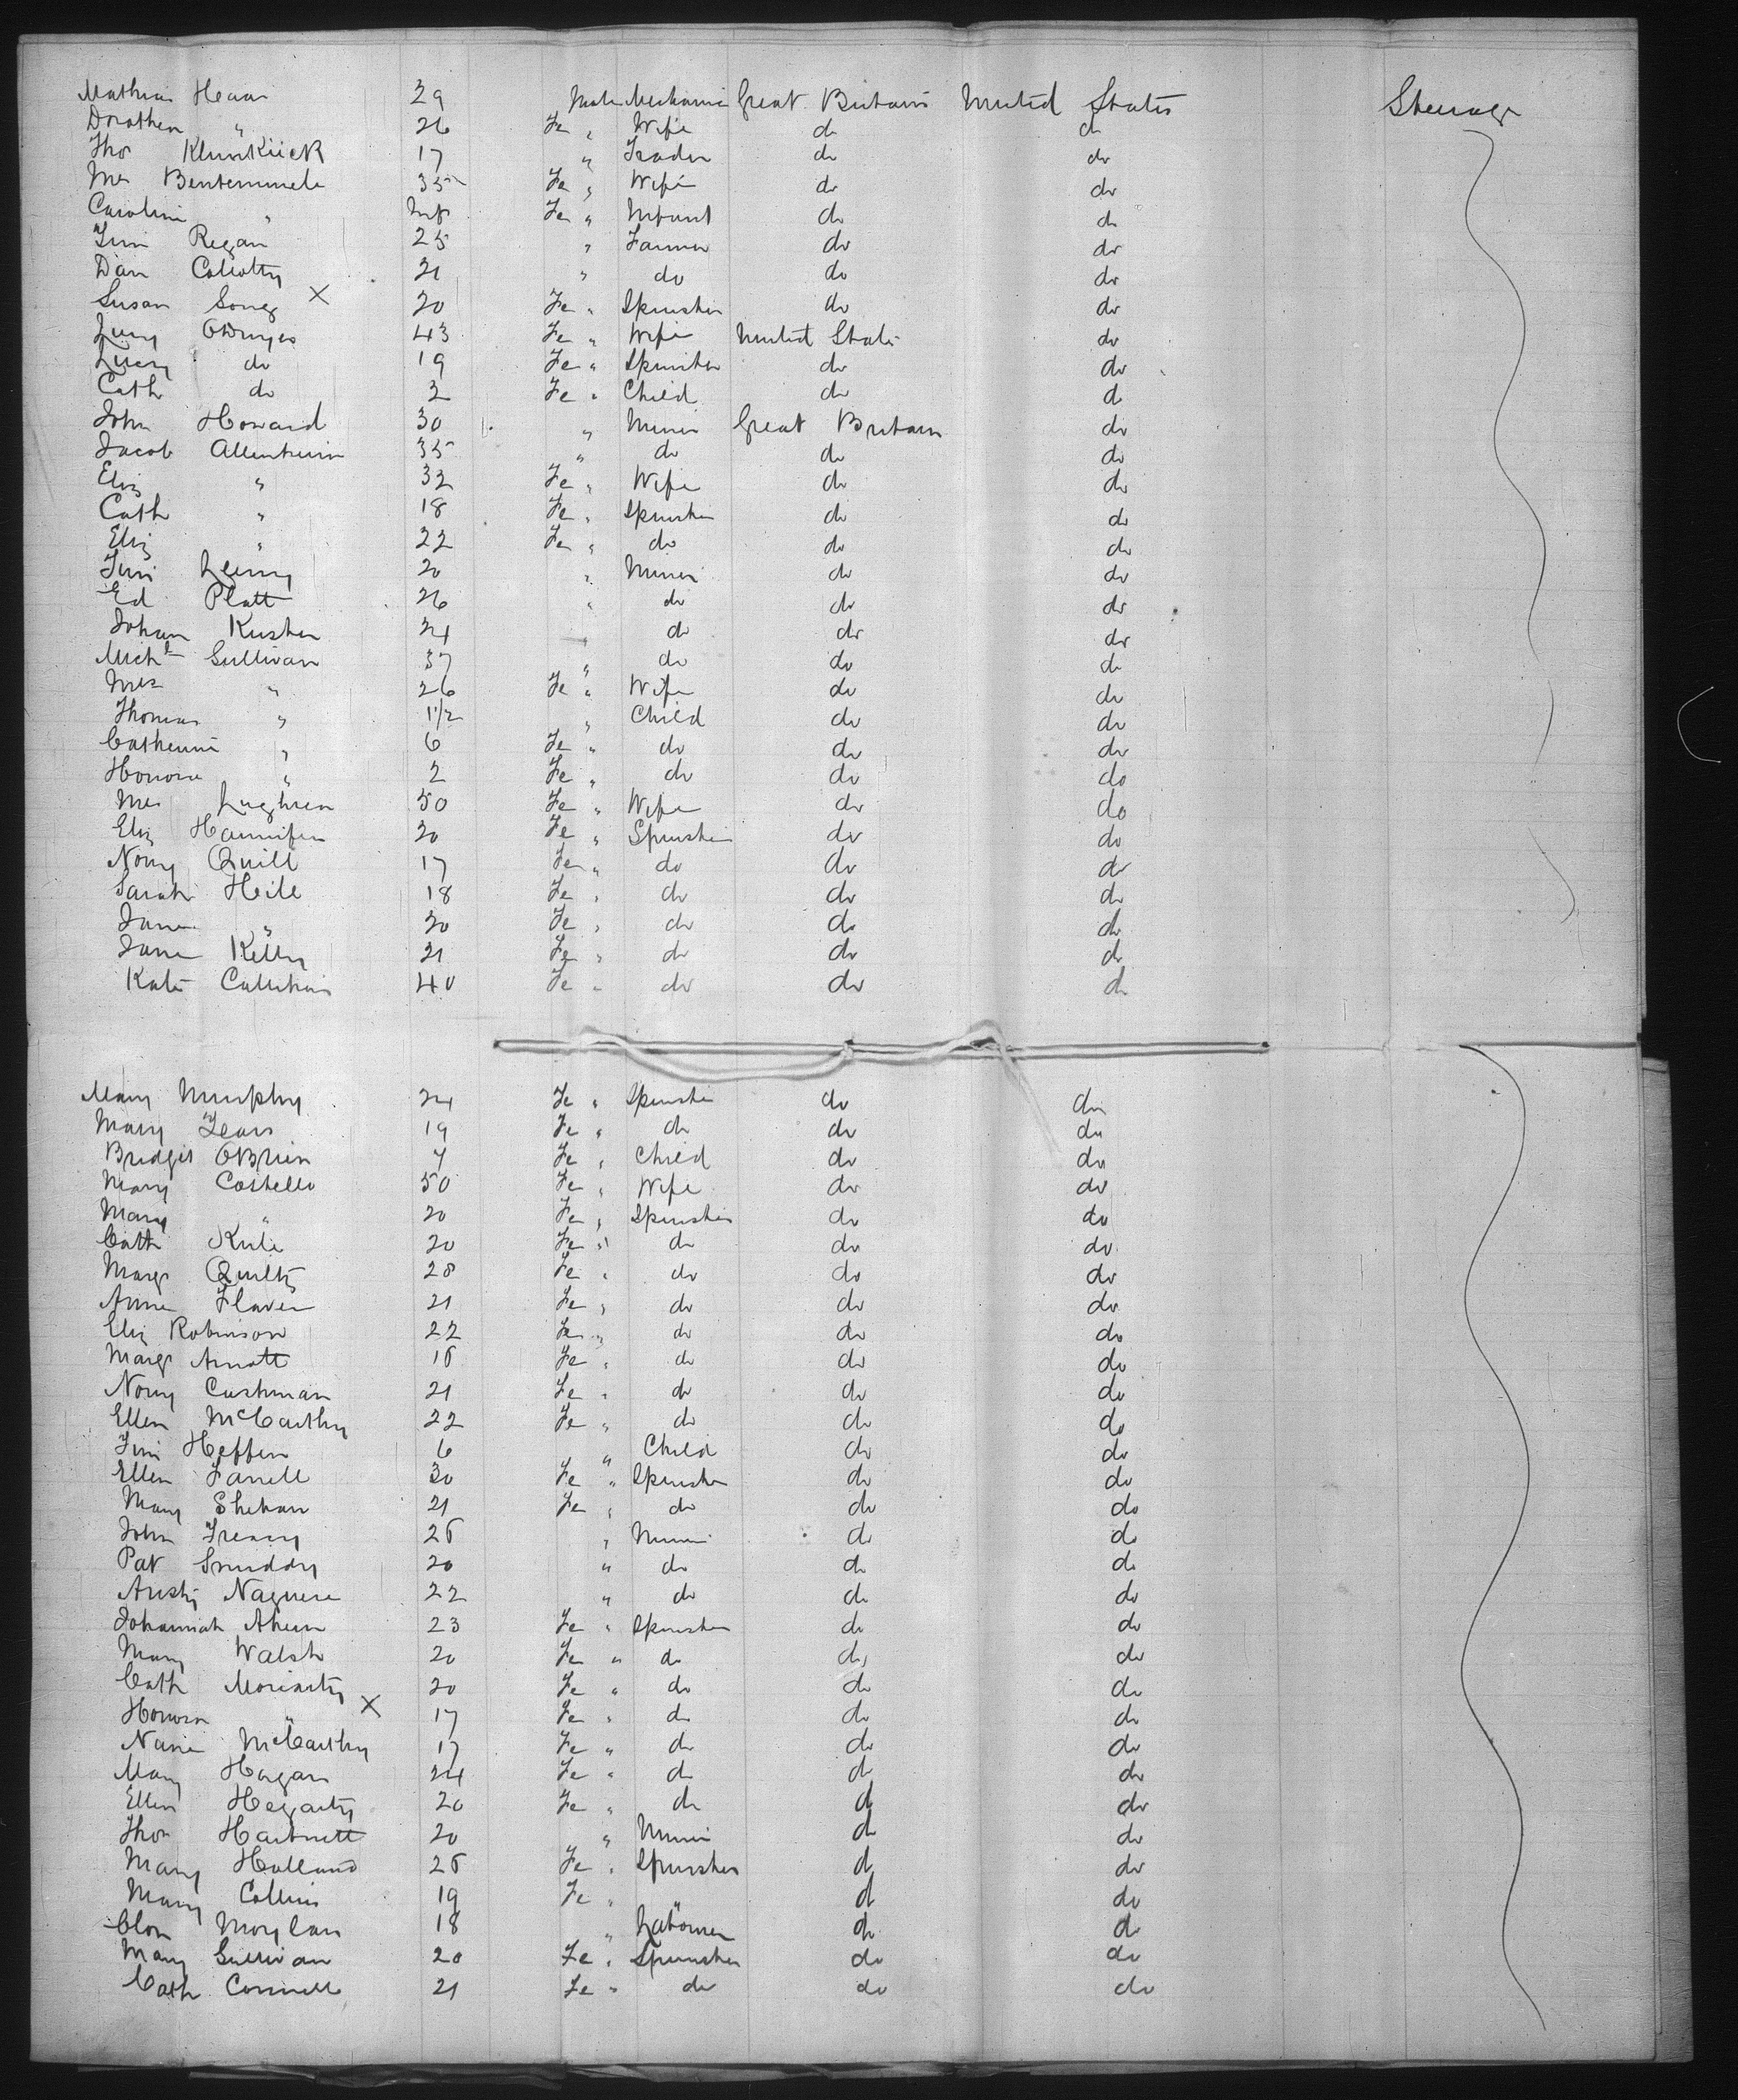 Mathias Haas 29 Male Mechanic Great Britain United States Steerage
Dorothea " 26 Fe " Wife do do
Thos 17 " Trader do do
Mrs 35 Fe " Wife do do
Caroline " Inf Fe " Infant do do
Jim Regan 25 " Farmer do do
Dan 21 " do do do
Susan X 20 Fe " Spinster do do
43 Fe " Wife United States do
Lucy do 19 Fe " Spinster do do
Cath do 2 Fe " Child do do
John Howard 30 " Miner Great Britain do
Jacob 35 " do do do
Eliz " 32 Fe " Wife do do
Cath " 18 Fe " Spinster do do
Eliz " 22 Fe " do do do
Jim 20 " Miner do do
Ed Platt 26 " do do do
Johan 24 " do do do
Michl Sullivan 37 " do do do
Mrs " 26 Fe " Wife do do
Thomas " 1 1/2 " Child do do
Catherine " 6 Fe " do do do
Honora " 2 Fe " do do do
Mrs Lughren 50 Fe " Wife do do
Eliz Hannifen 20 Fe " Spinster do do
Nony Quill 17 Fe " do do do
Sarah Heile 18 Fe " do do do
Jane " 20 Fe " do do do
Jane Kelly 21 Fe " do do do
Kate 40 Fe " do do do
Mary Murphy 24 Fe " Spinster do do
Mary 19 Fe " do do do
Bridget OBrien 7 Fe " Child do do
Mary Costello 50 Fe " Wife do do
Mary " 20 Fe " Spinster do do
Cath 20 Fe " do do do
Margt Quilty 28 Fe " do do do
Anne Flaven 21 Fe " do do do
Eliz Robinson 22 Fe " do do do
Margt Arnott 18 Fe " do do do
Nony Cushman 21 Fe " do do do
Ellen McCarthy 22 Fe " do do do
Jim Heffen 6 " Child do do
Ellen Farrell 30 Fe " Spinster do do
Mary Shehan 21 Fe " do do do
John Treacy 28 " Miner do do
Pat Smiddy 20 " do do do
Austy 22 " do do do
Johannah Ahern 23 Fe " Spinster do do
Mary Walsh 20 Fe " do do do
Cath Moriarty 20 Fe " do do do
Honora " X 17 Fe " do do do
Nane McCarthy 17 Fe " do do do
Mary Hogan 24 Fe " do do do
Ellen Hegarty 20 Fe " do do do
Thos Hartnett 20 " Miner do do
Mary Holland 28 Fe " Spinster do do
Mary Collins 19 Fe " " do do
Moylan 18 " Laborer do do
Mary Sullivan 20 Fe " Spinster do do
Cath Connell 21 Fe " do do do